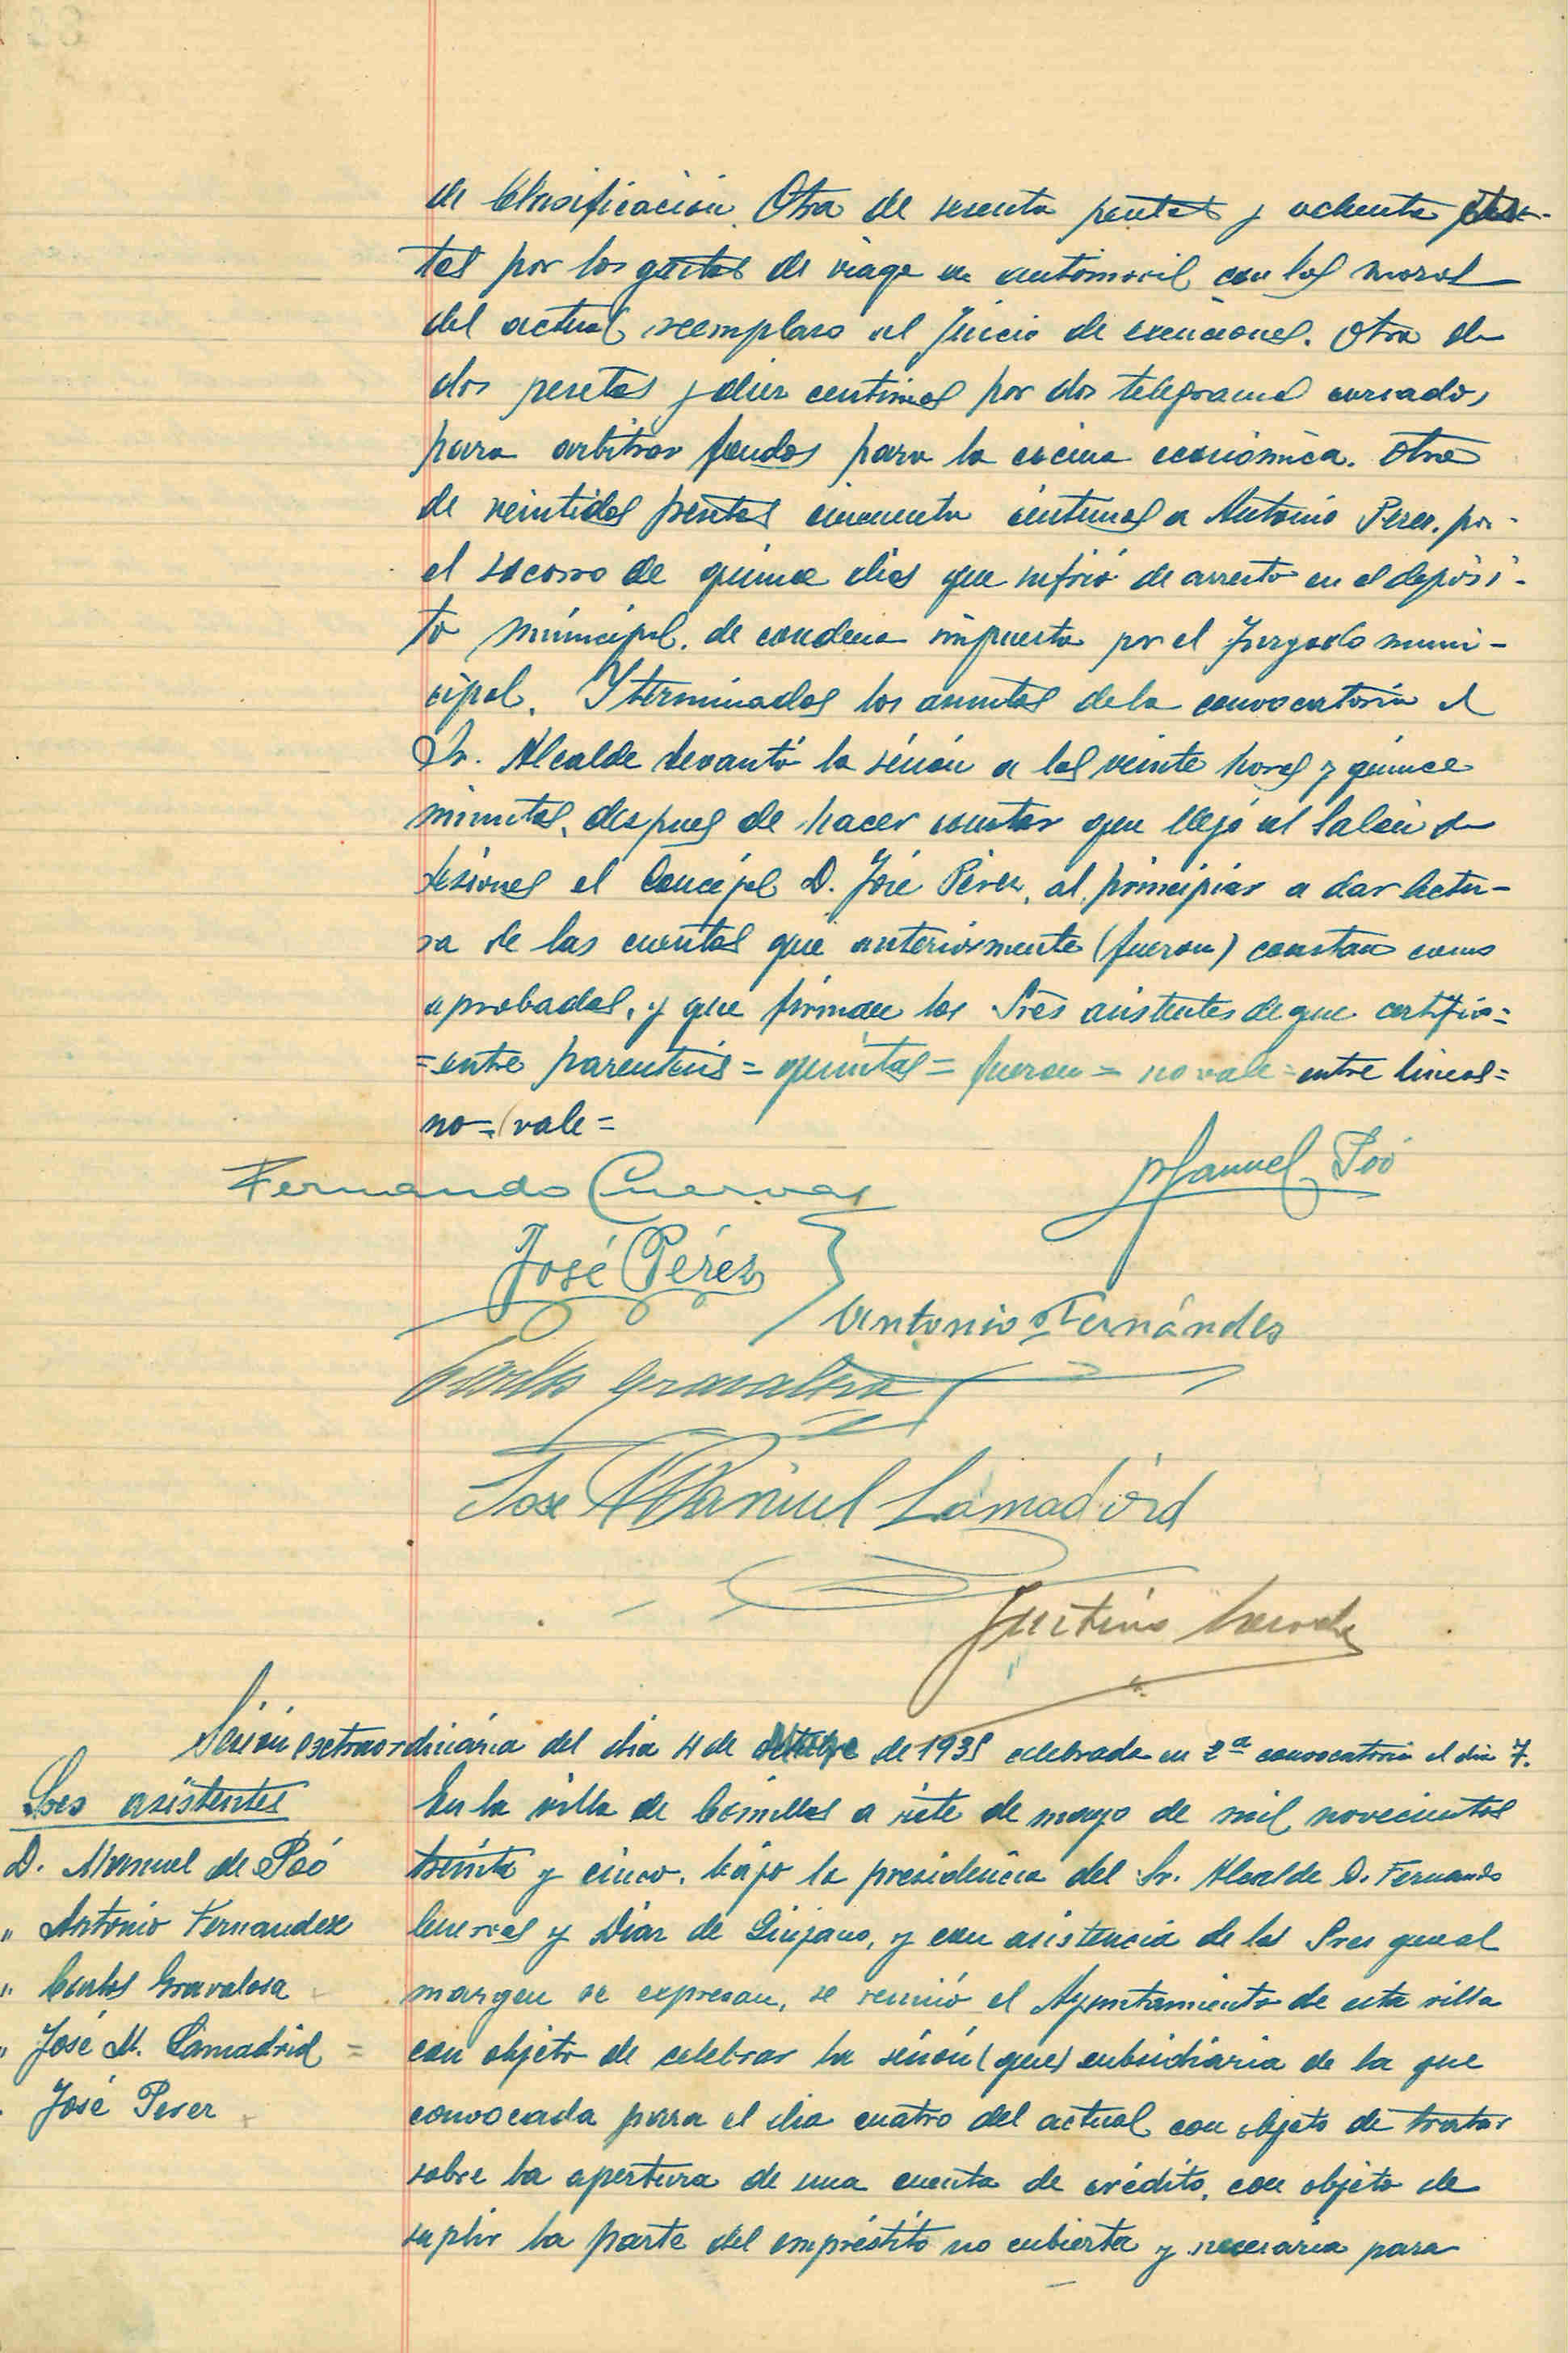 de Clasificación. Otra de sesenta pesetas y ochenta
tas por los gastos de viage en automovil con los mozos
del actual reemplazo al Juicio de exenciones. Otra de
dos pesetas y diez centimos por dos telegramas cursados
para arbitrar fondos para la cocina económica. Otra
de veintidos pesetas cincuenta centimos a Antonio Perez. por
el socorro de quince dias que sufrió de arresto en el deposi-
to municipal. de condena impuesta por el Juzgado muni-
cipal. Y terminados los asuntos de la convocatoria el
Sr. Alcalde levantó la sesión a las veinte horas y quince
minutos. despues de hacer constar que llegó al Salón de
sesiones el Concejal D. José Pérez, al principiar a dar lectu-
ra de las cuentas que anteriormente (fueron) constan como
aprobadas, y que firman los Sres asistentes de que certifico=
=entre parentesis = quintas = fueron = no vale = entre lineas =
no = vale =
Manuel Poó
Fernando Cuevas
José Pérez
Antonio Fernández
Carlos Gravalosa
Jose Manuel Lamadrid
Justino
Sesión extraordinária del dia 4 de de 1935 celebrada en 2ª convocatoria el dia 7.
Sres asistentes
D. Manuel de Poó
" Antonio Fernandez
" Carlos Gravalosa
" José M. Lamadrid =
" José Perez
En la villa de Comillas a siete de mayo de mil novecientos
treinta y cinco. bajo la presidencia del Sr. Alcalde D. Fernando
Cuevas y Diaz de Quijano, y con asistencia de los Sres que al
margen se expresan, se reunió el Ayuntamiento de esta villa
con objeto de celebrar la sesión (que) subsidiaria de la que
convocada para el dia cuatro del actual con objeto de tratar
sobre la apertura de una cuenta de crédito, con objeto de
suplir la parte del empréstito no cubierta y necesaria para